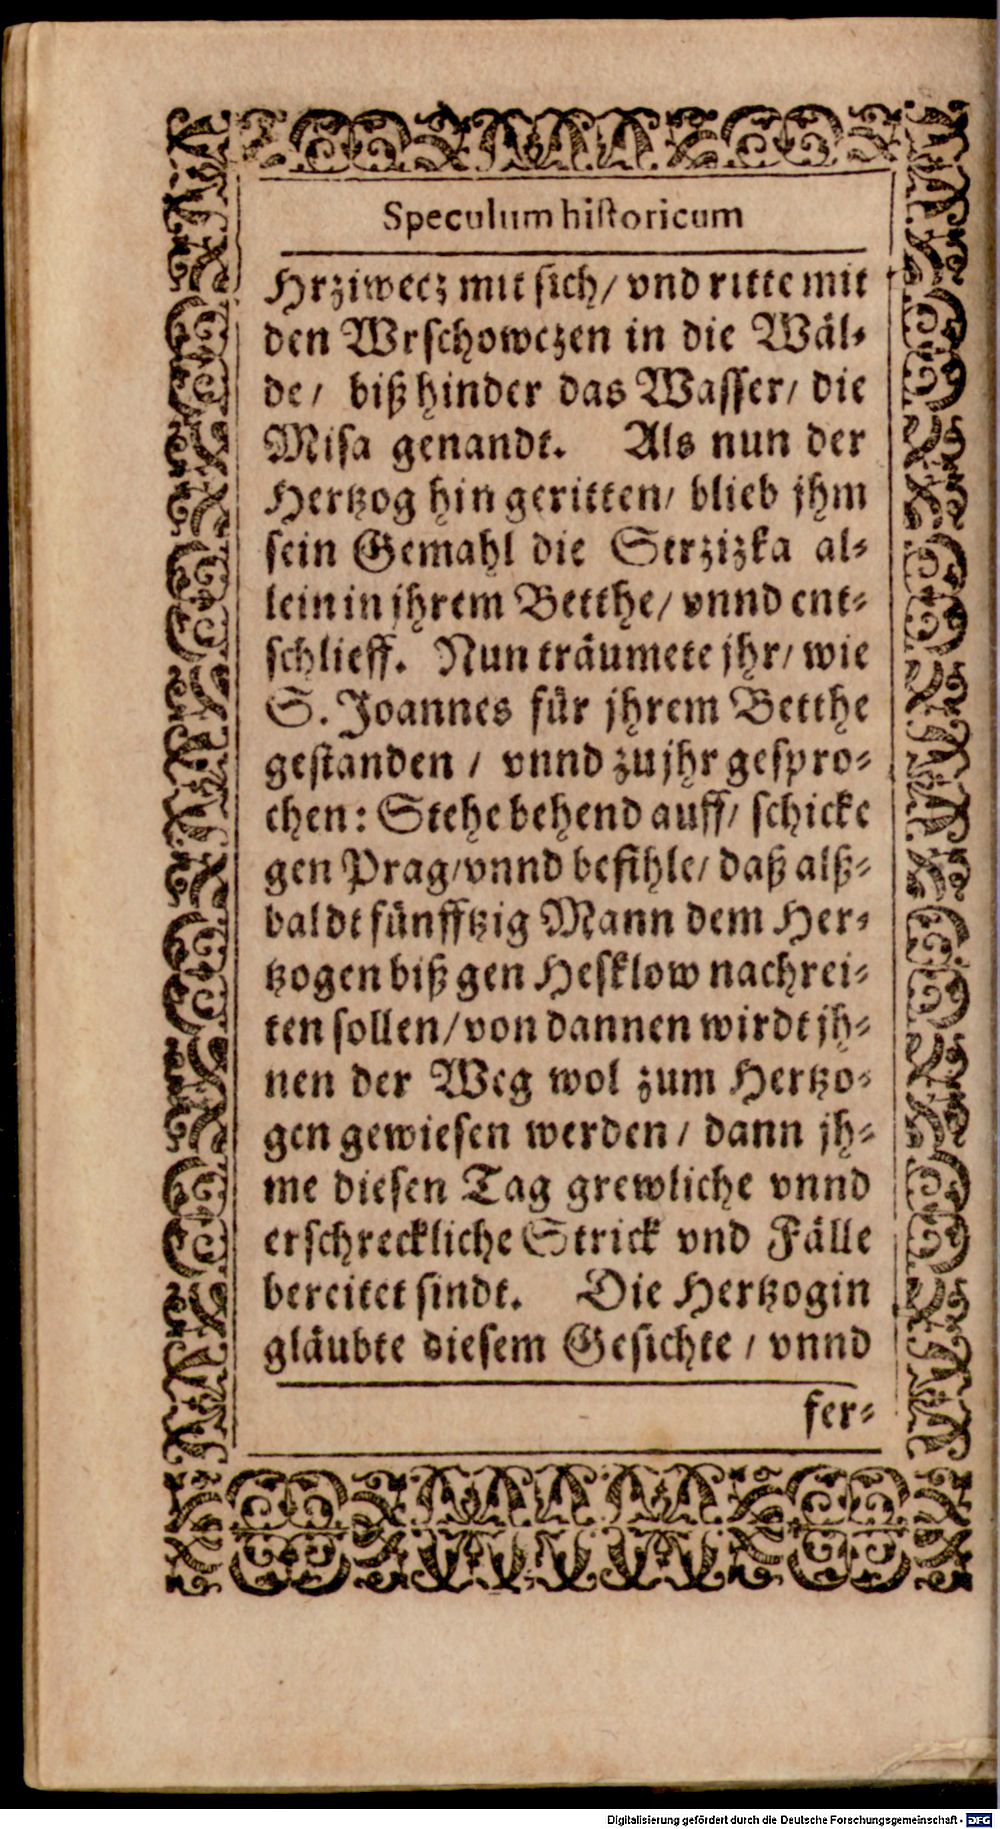 Speculum historicum
Hrziwecz mit sich/ vnd ritte mit
den Wrschowczen in die Wäl-
de/ biß hinder das Wasser/ die
Misa genandt. Als nun der
Hertzog hin geritten/ blieb jhm
sein Gemahl die Strzizka al-
lein in jhrem Betthe/ vnnd ent-
schlieff. Nun träumete jhr/ wie
S. Joannes für jhrem Betthe
gestanden / vnnd zu jhr gespro-
chen: Stehe behend auff/ schicke
gen Prag/vnnd befihle/ daß alß-
baldt fünfftzig Mann dem Her-
tzogen biß gen Hesklow nachrei-
ten sollen/von dannen wirdt jh-
nen der Weg wol zum Hertzo-
gen gewiesen werden/ dann jh-
me diesen Tag grewliche vnnd
erschreckliche Strick vnd Fälle
bereitet sindt. Die Hertzogin
gläubte diesem Gesichte / vnnd
fer-
Digitalisierung gefördert durch die Deutsche Forschungsgemeinschaft - DFG